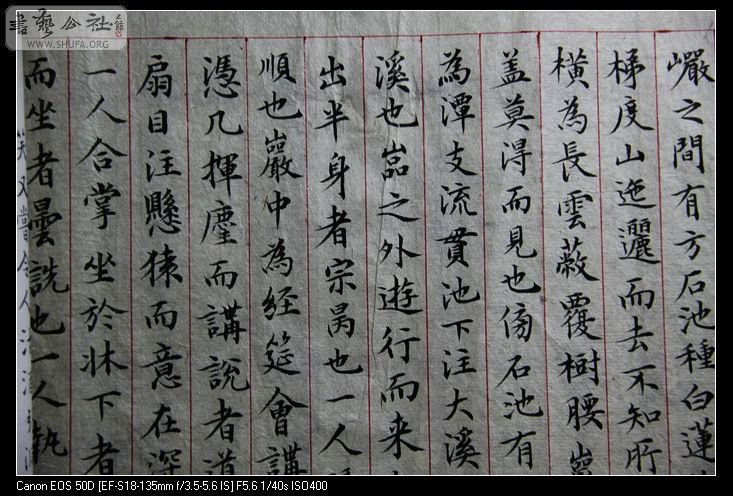 書藝公社
WWW.SHUFA.ORG
巖之間有方石池種白蓮
梯度山迤邐而去不知所
橫為長雲蔽覆樹腰巖
盖莫得而見也傍石池有
為潭支流貫池下注大溪
溪也嵓之外遊行而来
出半身者宗昺也一人
順也巖中為經筵會講
憑几揮麈而講說者道
扇目注懸猿而意在深
一人合掌坐於牀下者
而坐者曇詵也一人執
Canon EOS 50D [EF-S18-135mm f/3.5-5.6 IS] F5.6 1/40s ISO400